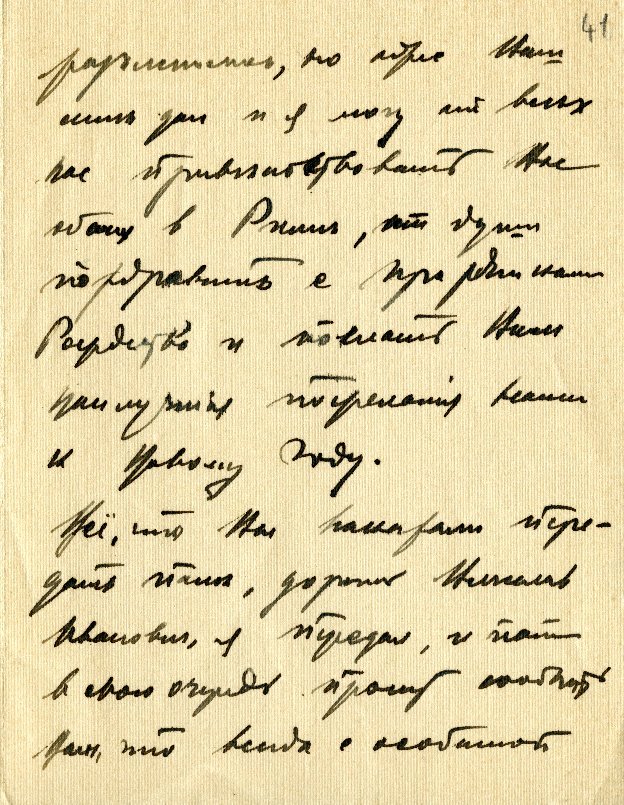 41
разумеется, но адрес Ваш
мне дан и я могу от всех
нас приветствовать Вас
обоих в Риме, от души
поздравить с праздниками
Рождества и послать Вам
наилучшия пожелания
к Новому Году.
Всё, что Вы пере-
дать папе, дорогой
Иванович, я передал, и папа
в свою очередь просит сообщить
Вам, что всегда с особенной